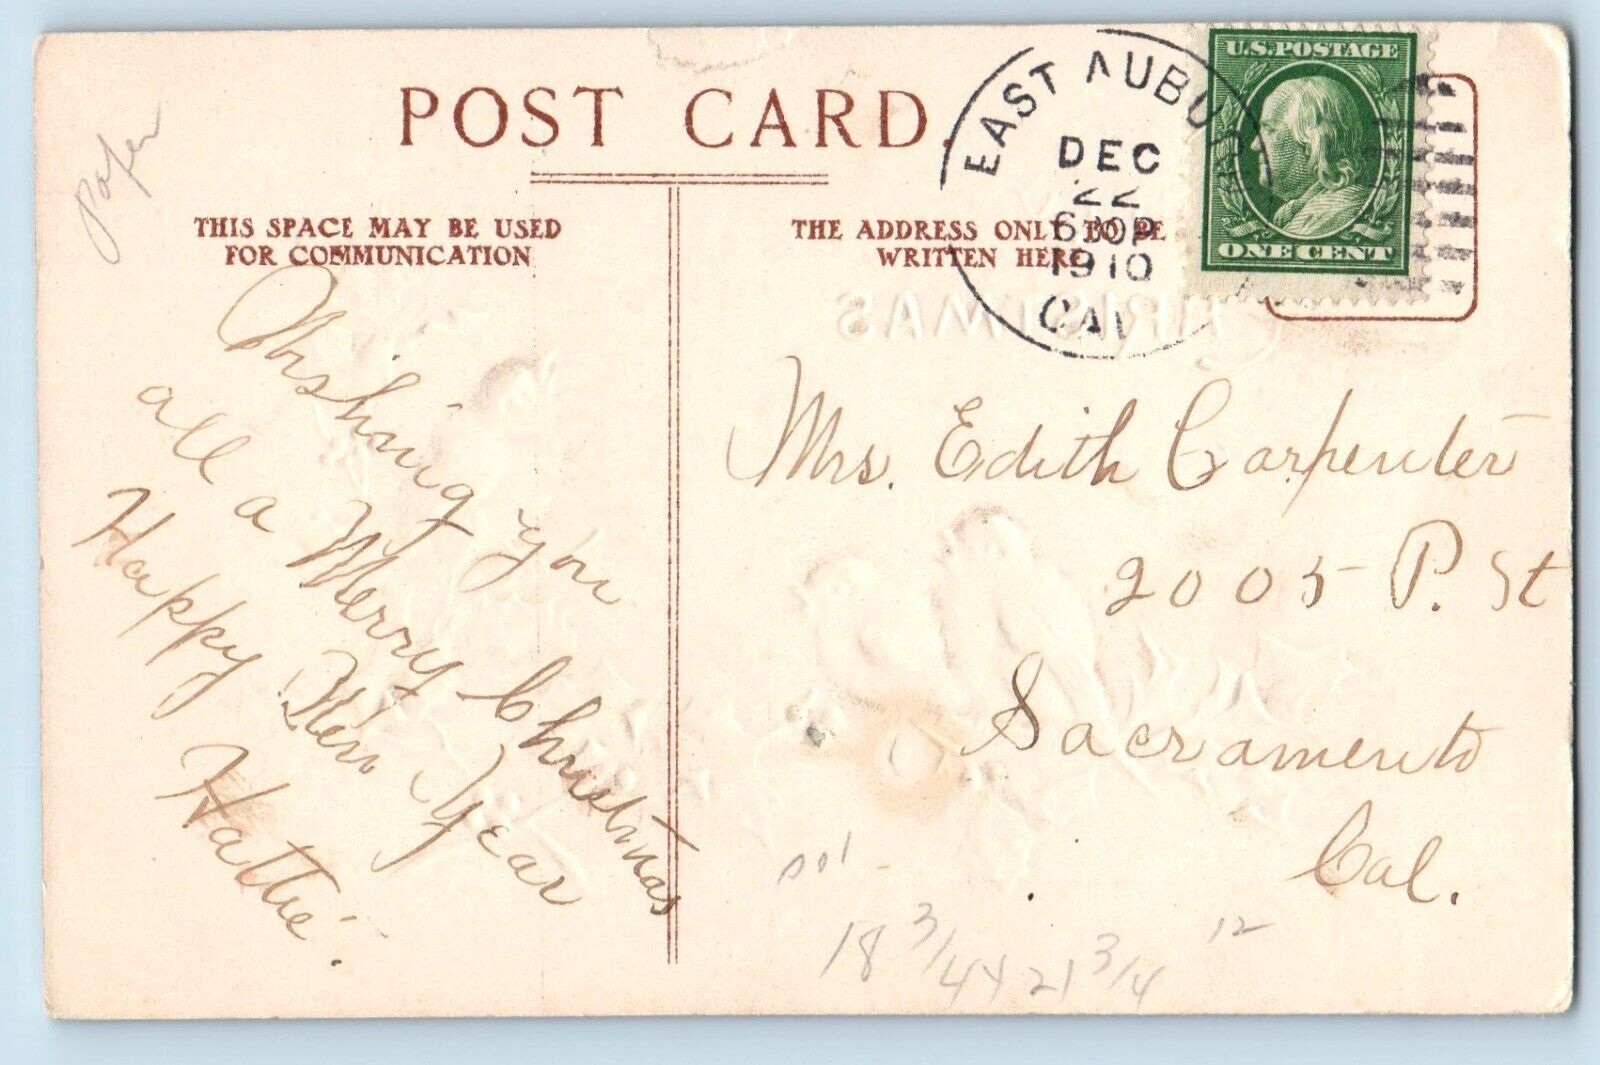 POST CARD.
THIS SPACE MAY BE USED
FOR COMMUNICATION
THE ADDRESS ONLY TO BE
WRITTEN HERE
EAST AUBURN
DEC
22
630P
1910
CAL
U.S.POSTAGE
ONE CENT
CHRISTMAS
Paper
Wishing you
all a Merry Christmas
Happy New Year
Hattie.
Mrs. Edith Carpenter
2005 P. St
Sacramento
Cal.
18 3/4 x 21 3/4
12